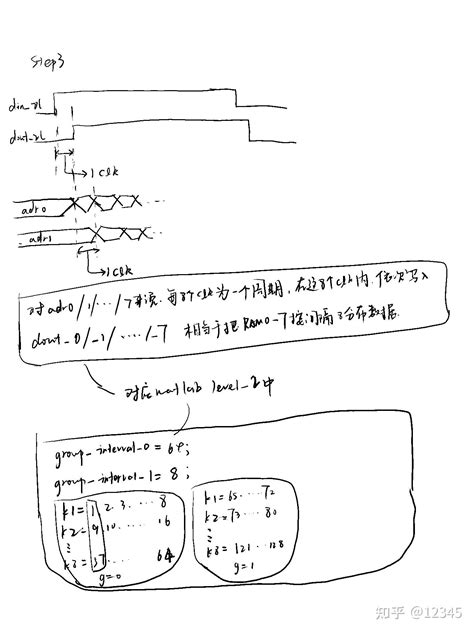 Step3
din_vl
dout_vl
1 clk
adr0
adr1
1clk
对adr0/1/.../7来说,每8个clk为一个周期,在这8个clk内,依次写入
dout_0/-1/..../-7 相当于把RAM0-7按间隔8分布数据.
对应matlab level_2中
group_interval_0 = 64;
group_interval_1 = 8;
k1=1 2. 3. .... 8
k2=9 10. .... 16
k8=57 .... 64
g=0
k1=65 .... 72
k2=73 .... 80
k8=121 ... 128
g=1
知乎 @12345